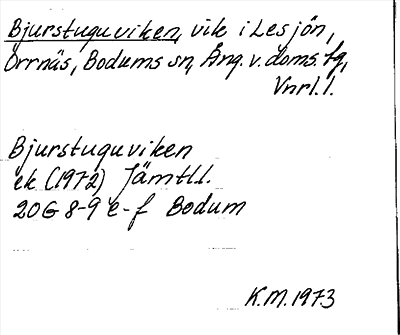 Bjurstuguviken, vik i Lesjön,
Örrnäs, Bodums sn, Ång. v. doms. fg,
Vnrl. l.
Bjurstuguviken
ek (1972) Jämtl.l.
20G 8-9 e-f Bodum
K.M. 1973